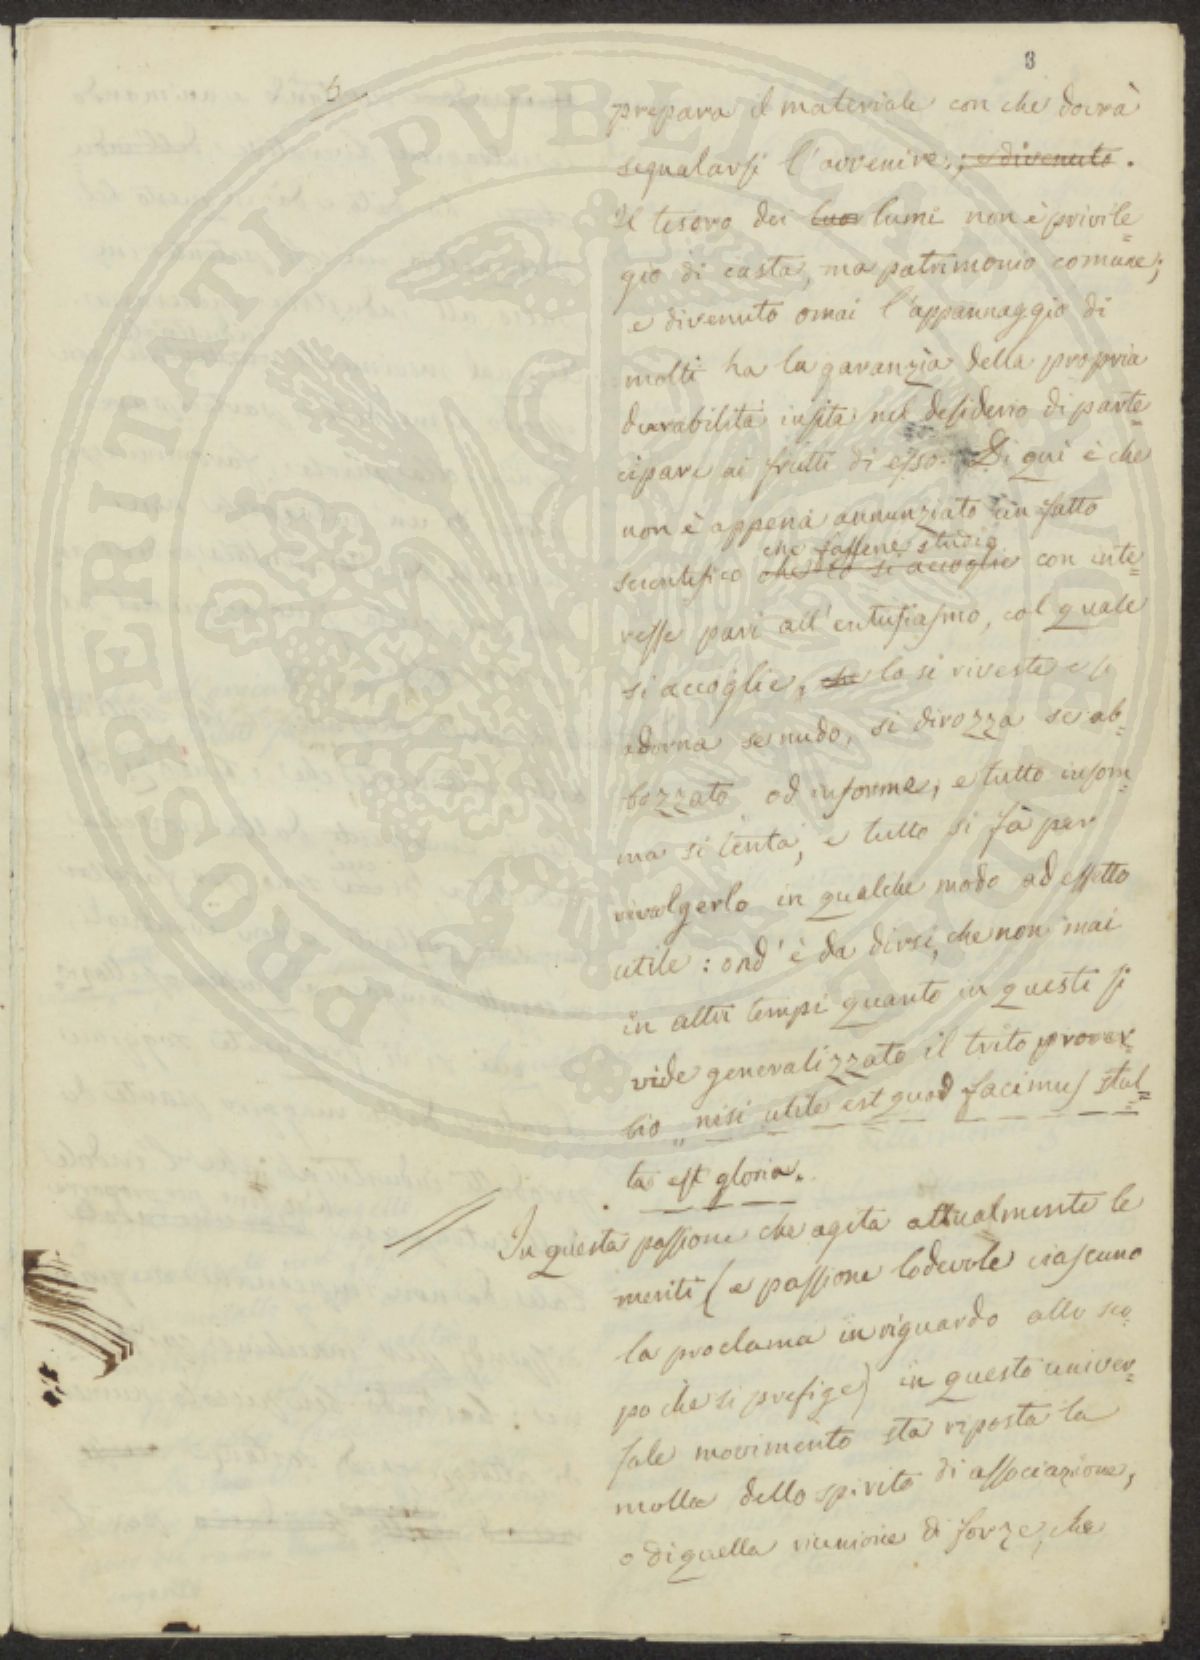 3
5
prepara il materiale con che dovrà
segnalarsi l'avvenire ; e divenuto .
Il tesoro dei lumi non è privile=
gio di casta, ma patrimonio comune;
e divenuto omai l'appannaggio di
molti ha la garanzia della propria
durabilità insita nel desiderio di parte=
cipare ai frutti di esso. Di qui è che
non è appena annunziato un fatto
che fassene studio
scientifico che lo si accoglie con inte=
resse pari all'entusiasmo, col quale
si accoglie, che lo si riveste e si
adorna se nudo, si dirozza se ab=
bozzato od informe, e tutto insom=
ma si tenta, e tutto si fà per
rivolgerlo in qualche modo ad effetto
utile : ond'è da dirsi, che non mai
in altri tempi quanto in questi si
vide generalizzato il trito prover=
bio „ nisi utile est quod facimus stul=
ta est gloria.
In questa passione che agita attualmente le
menti (e passione lodevole ciascuno
la proclama in riguardo allo sco=
po che si prefige) in questo univer=
sale movimento sta riposta la
molla dello spirito di associazione,
o di quella riunione di forze, che
PROSPERITATI PVBLICAE